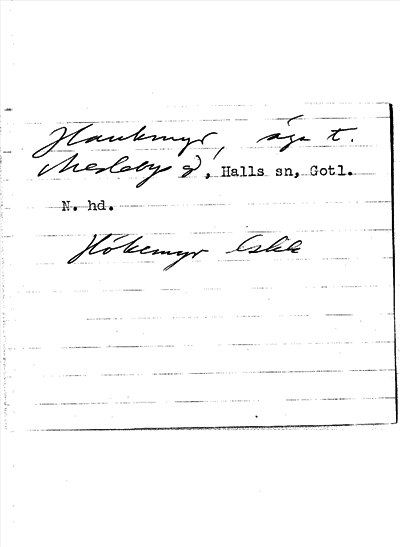 Haukmyr, äga t.
Medeby gd, Halls sn, Gotl.
N. hd.
Hökemyr